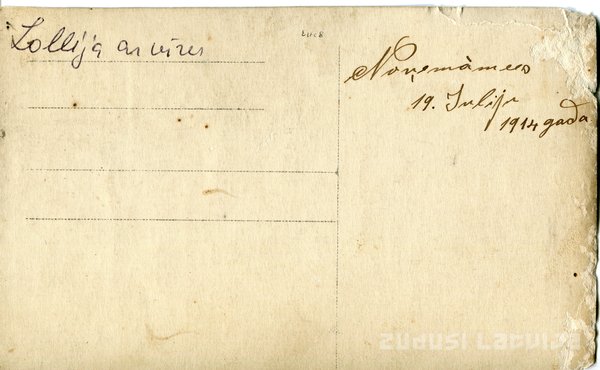 Lollija ar vīru
Noņemāmees
19. Julijr
1914 gada
ZUDUSI LATVIJA